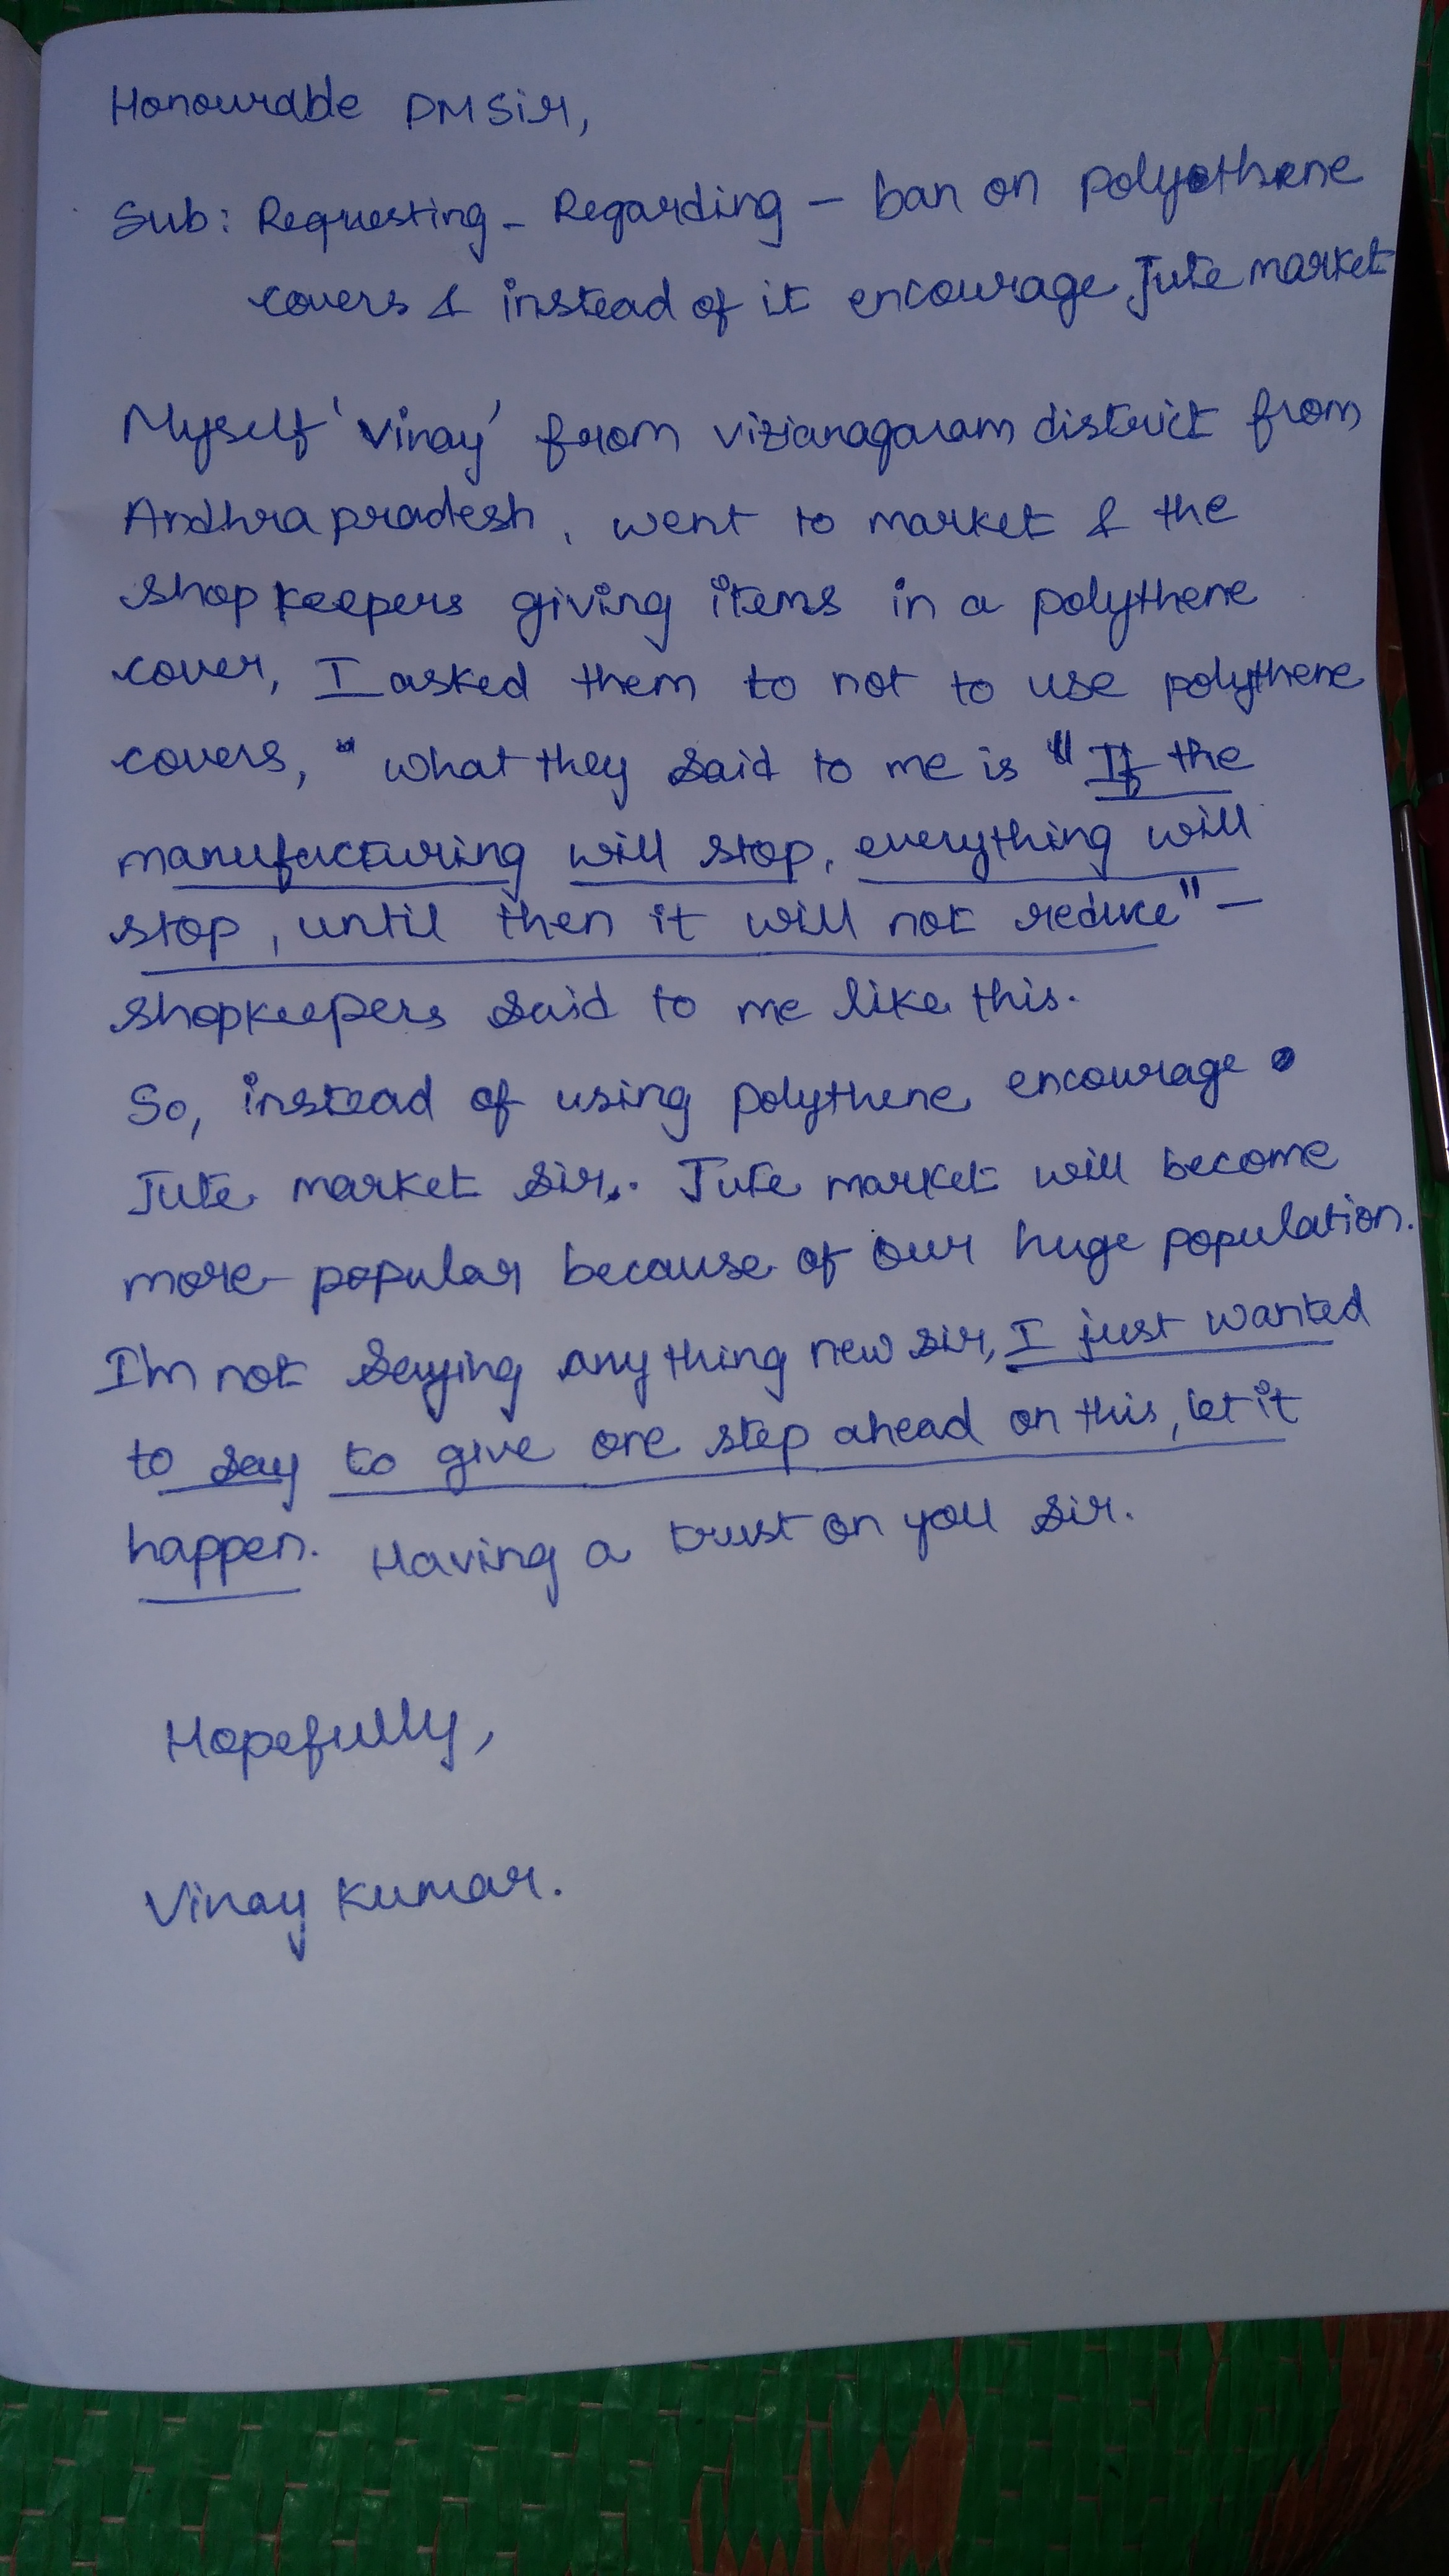 Honourable PM Sir,
Sub: Requesting - Regarding - ban on polyethene
covers & instead of it encourage Jute market
Myself 'Vinay' from vizianagaram district from
Andhra pradesh, went to market & the
shop keepers giving items in a polythene
cover, I asked them to not to use polythene
covers, " what they said to me is "If the
manufacturing will stop, everything will
stop, until then it will not reduce" -
shopkeepers said to me like this.
So, instead of using polythene encourage
Jute market sir. Jute market will become
more popular because of our huge population.
I'm not saying any thing new sir, I just wanted
to say to give one step ahead on this, let it
happen. Having a trust on you sir.
Hopefully,
Vinay Kumar.